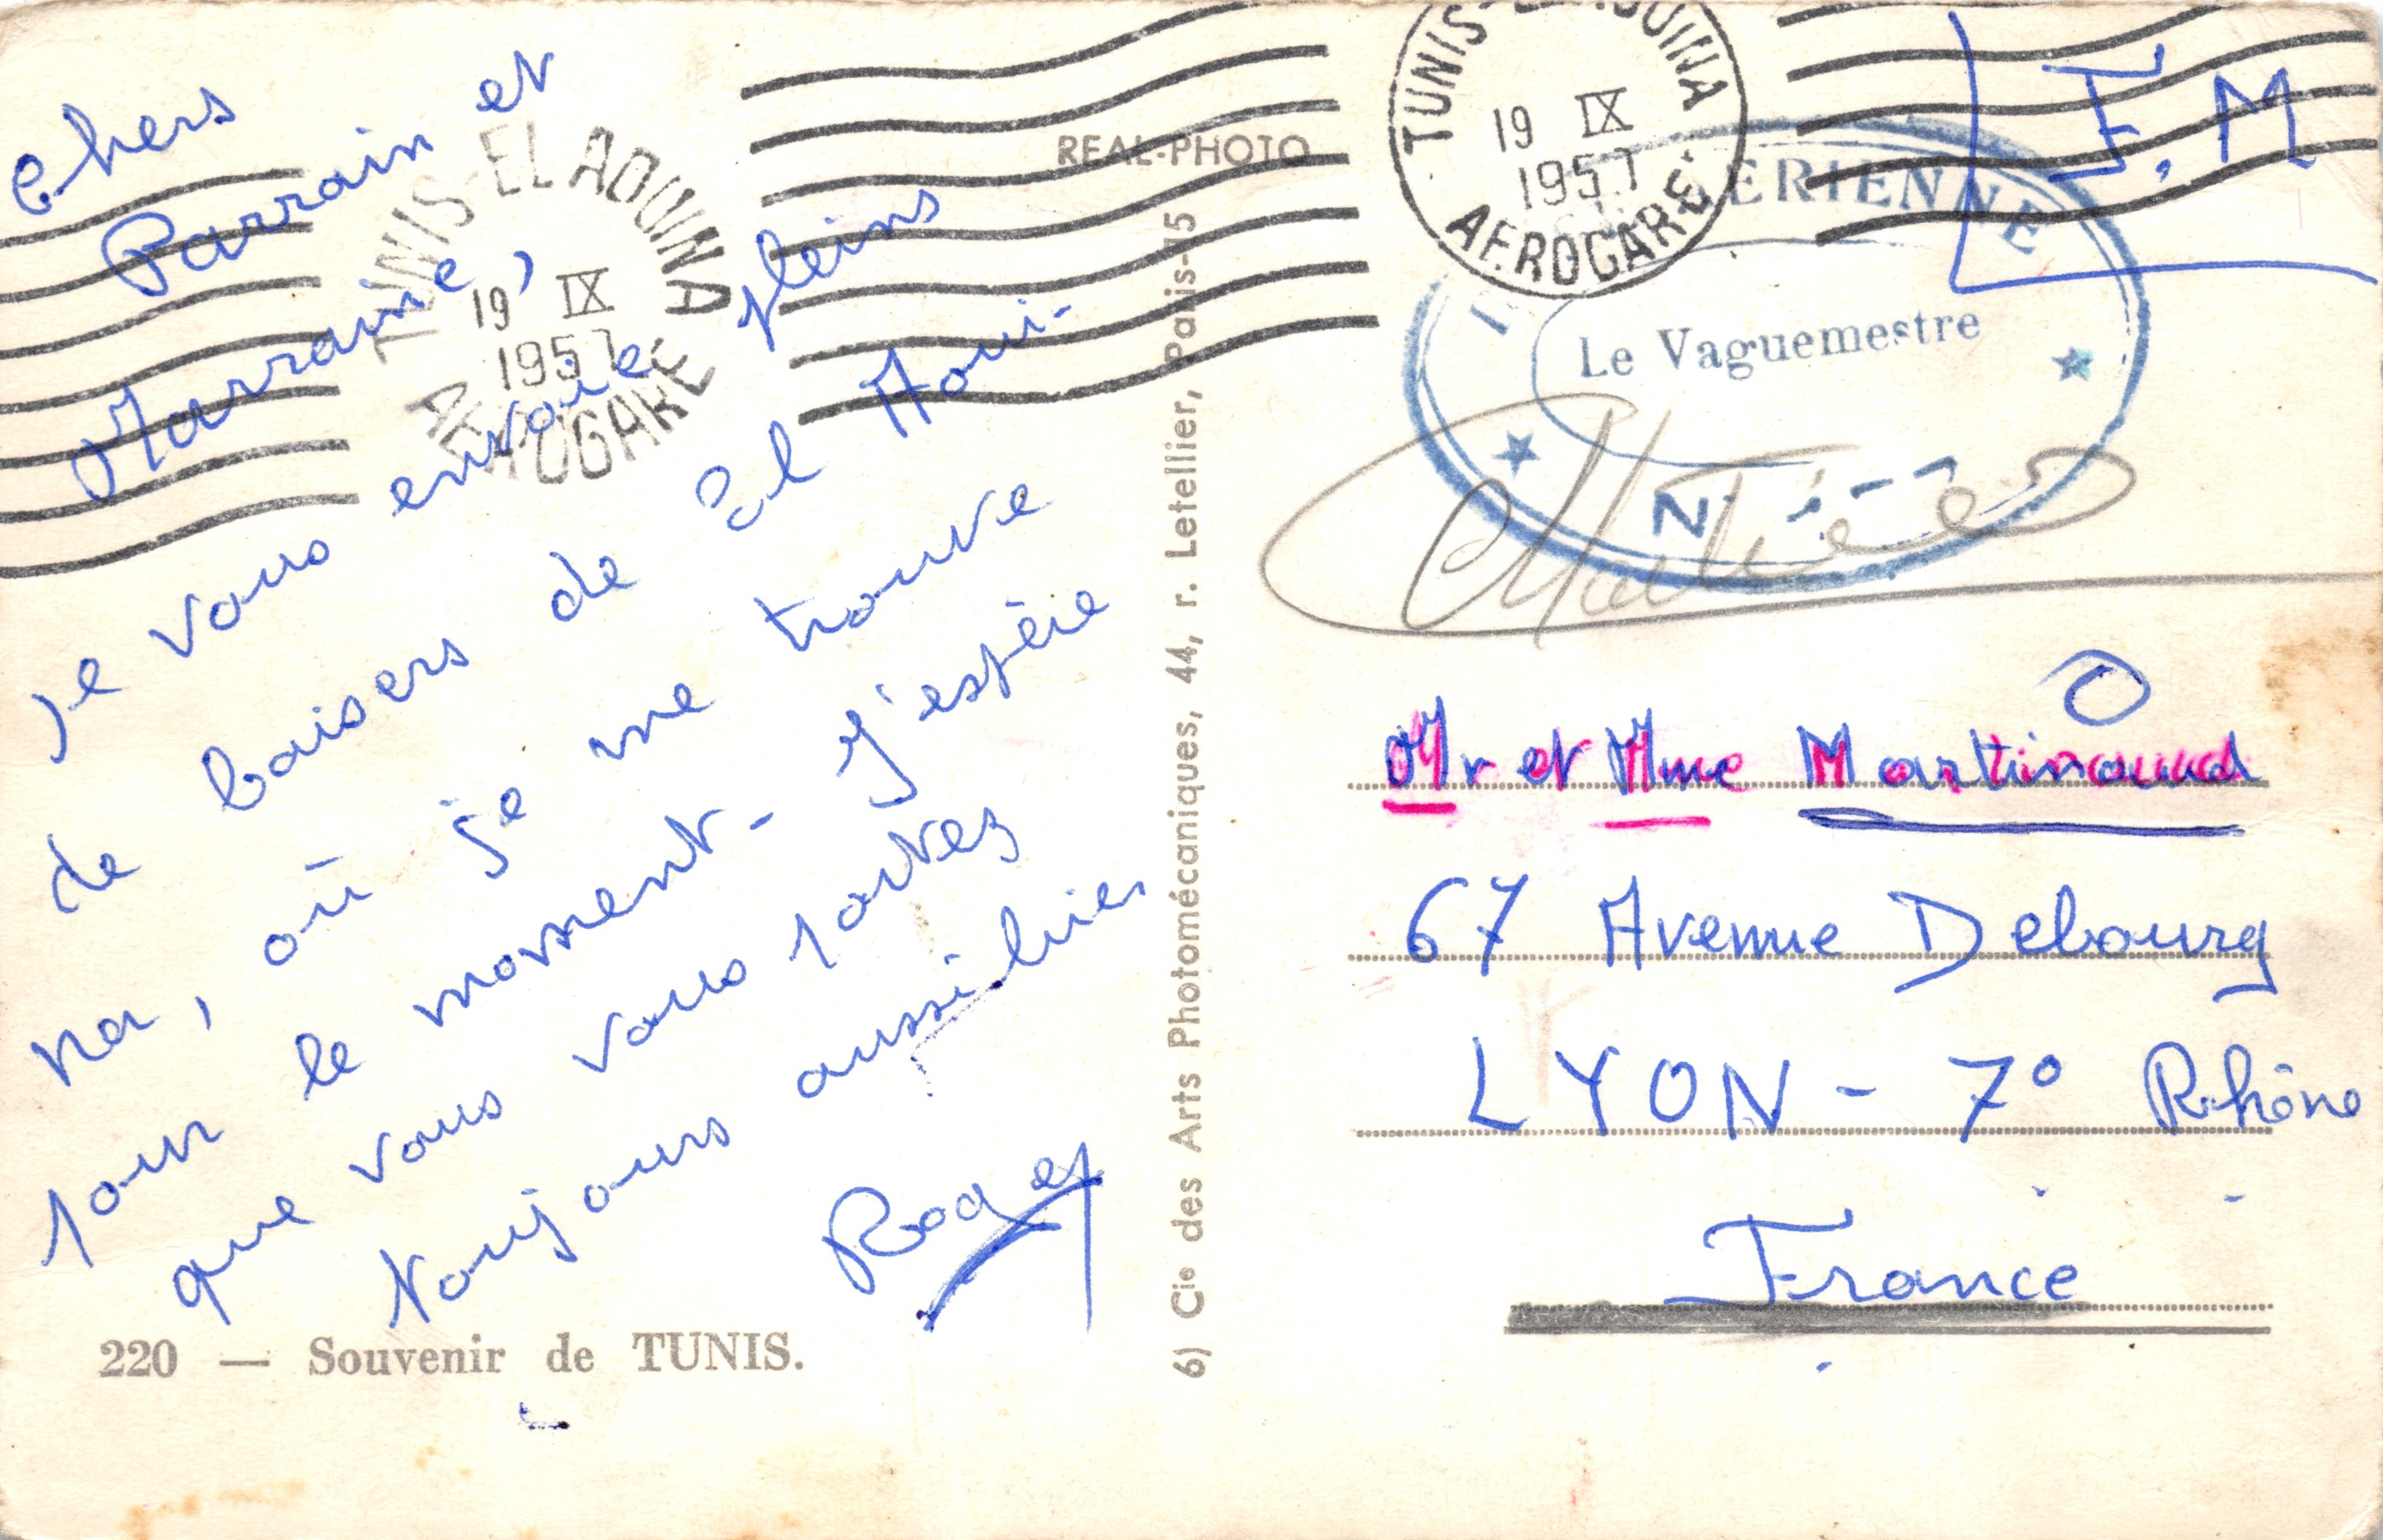 Chers
Parrain et
Marraine,
je vous envoie pleins
de baisers de El Aoui-
na, où je me trouve
pour le moment - J'espère
que vous vous portez
toujours aussi bien
Roger
220 — Souvenir de TUNIS.
TUNIS-EL AOUINA
19 IX
1957
AEROGARE
REAL-PHOTO
6) Cie des Arts Photomécaniques, 44, r. Letellier, Paris-15
TUNIS-EL AOUINA
19 IX
1957
AEROGARE
F.M
Le Vaguemestre
Mr et Mme Martinaud
67 Avenue Debourg
LYON - 7° Rhône
France